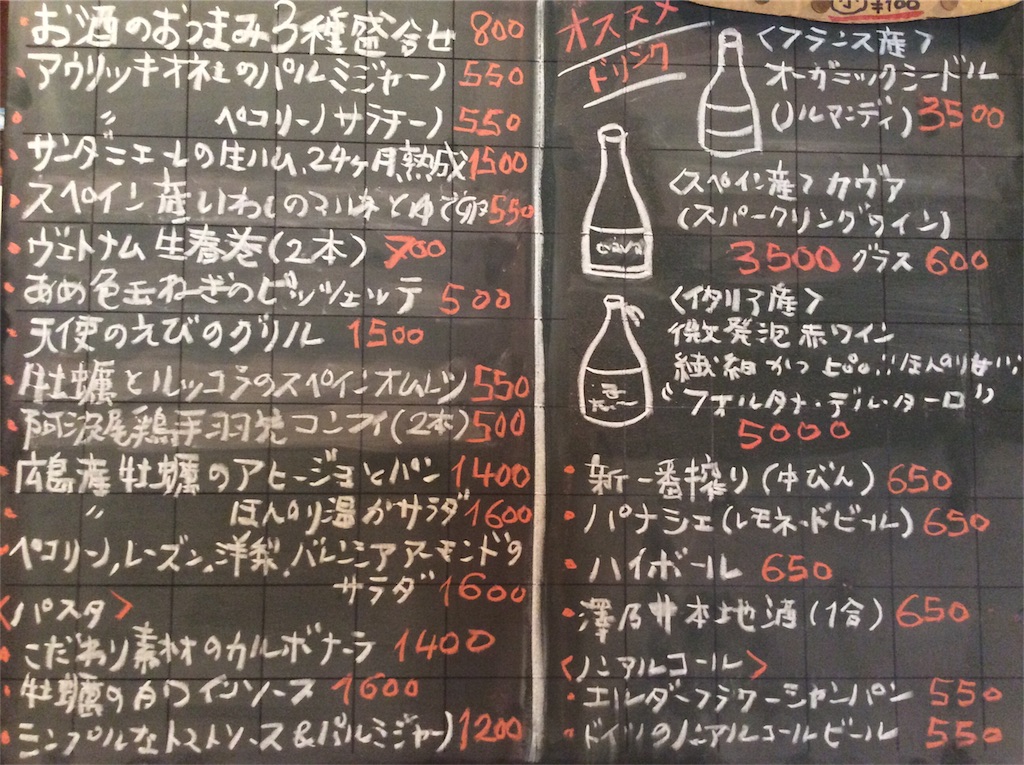 お酒のおつまみ3種盛合せ 800
・アウリッキオ社のパルミジャーノ 550
・〃 ペコリーノサラチーノ 550
・サンダニエーレの生ハム、24ヶ月熟成 1500
・スペイン産いわしのマリネとゆで卵 550
・ヴェトナム生春巻(2本) 700
・あめ色玉ねぎのピッツェッテ 500
・天使のえびのグリル 1500
・牡蠣とルッコラのスペインオムレツ 550
・阿波尾鶏手羽先コンフィ(2本) 500
・広島産牡蠣のアヒージョとパン 1400
・〃 ほんのり温かサラダ 1600
・ペコリーノ,レーズン,洋梨,バレンシアアーモンドの
サラダ 1600
<パスタ>
・こだわり素材のカルボナーラ 1400
・牡蠣の白ワインソース 1600
・シンプルなトマトソース&パルミジャーノ 1200
¥100
オススメ
ドリンク
<フランス産>
オーガニックシードル
(ノルマンディ) 3500
<スペイン産>カヴァ
(スパークリングワイン)
cava
3500 グラス 600
<イタリア産>
微発泡赤ワイン
繊細かつ ほんのり甘い
"フォルタナ・デル・ターロ"
5000
・新一番搾り(中びん) 650
・パナシェ(レモネードビール) 650
・ハイボール 650
・澤乃井本地酒(1合) 650
<ノンアルコール>
・エルダーフラワーシャンパン 550
・ドイツのノンアルコールビール 550